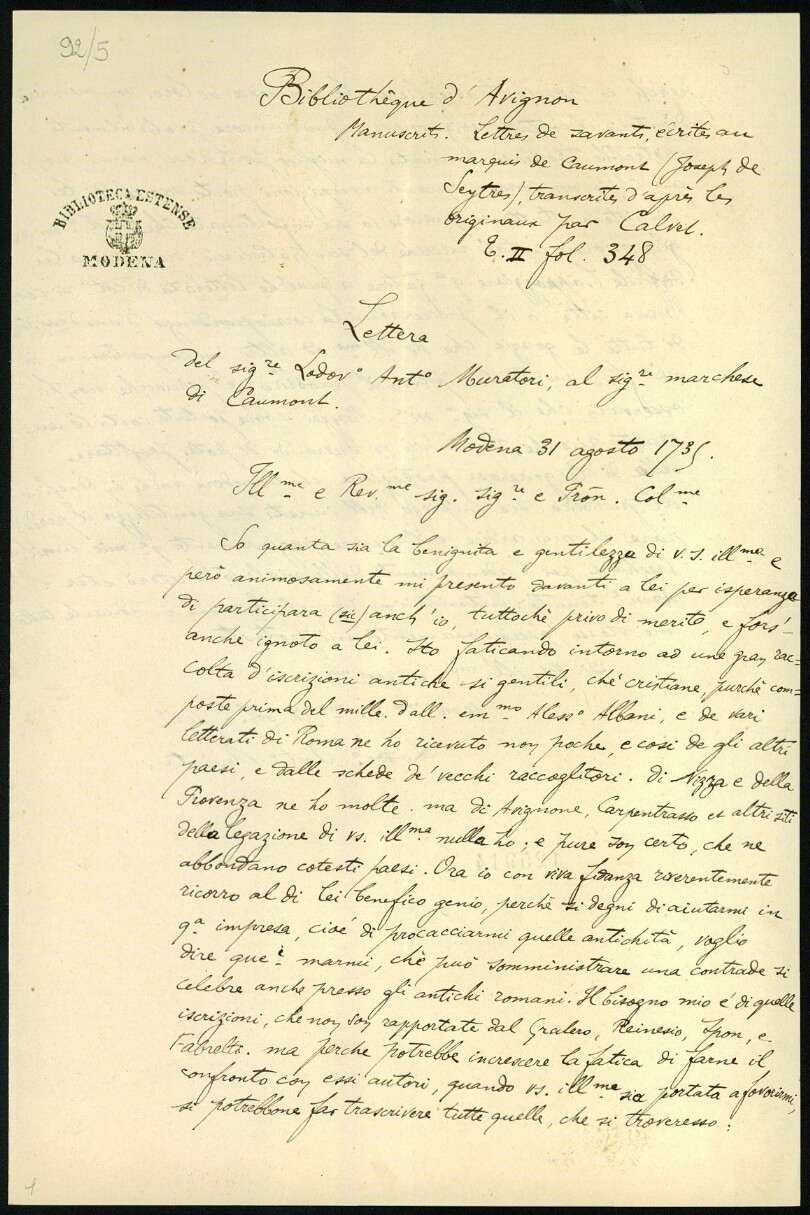 92/5
Bibliothèque d'Avignon
Manuscrits. Lettres de savants, écrites au
marquis de Caumont (Joseph de
Seytres), transcrites d'après les
originaux par Calvet.
T. II fol. 348
BIBLIOTECA ESTENSE
MODENA
Lettera
Del sig.re Lodov.o Ant.o Muratori, al sig.re marchese
di Caumont.
Modena 31 agosto 1735.
Ill.me e Rev.me sig. sig.re e Prōn. Col.me
So quanta sia la benignita e gentilezza di v. s. ill.ma e
però animosamente mi presento davanti a lei per isperanza
di participara (sic) anch'io, tuttochè privo di merito, e fors'-
anche ignoto a lei. Sto faticando intorno ad une gran rac=
colta d'iscrizioni antiche si gentili, chè cristiane, purchè com=
poste prima del mille. Dall. em.mo Aless.o Albani, e de vari
letterati di Roma ne ho ricevuto non poche, e cosi de gli altri
paesi, e dalle schede de' vecchi raccoglitori. Di Nizza e della
Provenza ne ho molte. ma di Avignone, Carpentrasso et altri siti
della legazione di vs. ill.ma nulla ho; e pure son certo, che ne
abbondano cotesti paesi. Ora io con viva fidanza riverentemente
ricorro al di lei benefico genio, perchè si degni di aiutarmi in
q.a impresa, cioé di procacciarmi quelle antichità, voglio
dire que' marmi, chè può somministrare una contrade si
celebre anche presso gli antichi romani. Il bisogno mio é di quelle
iscrizioni, che non son rapportate dal Grutero, Reinesio, Spon, e
Fabretti. ma perche potrebbe increscere la fatica di farne il
confronto con essi autori, quando vs. ill.me sia portata a favorirmi,
si potrebbone far trascrivere tutte quelle, che si troveresso: